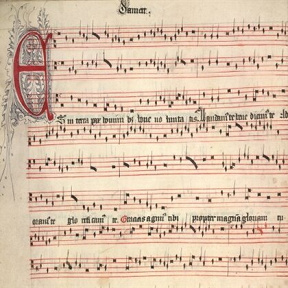 Damett.
E t in terra pax homini bꝰ bone volunta tis. Laudamꝰ te bene dicimꝰ te Ad
oramꝰ te glo rificamꝰ te. Gracias agimꝰ tibi propter magnā gloriam tu